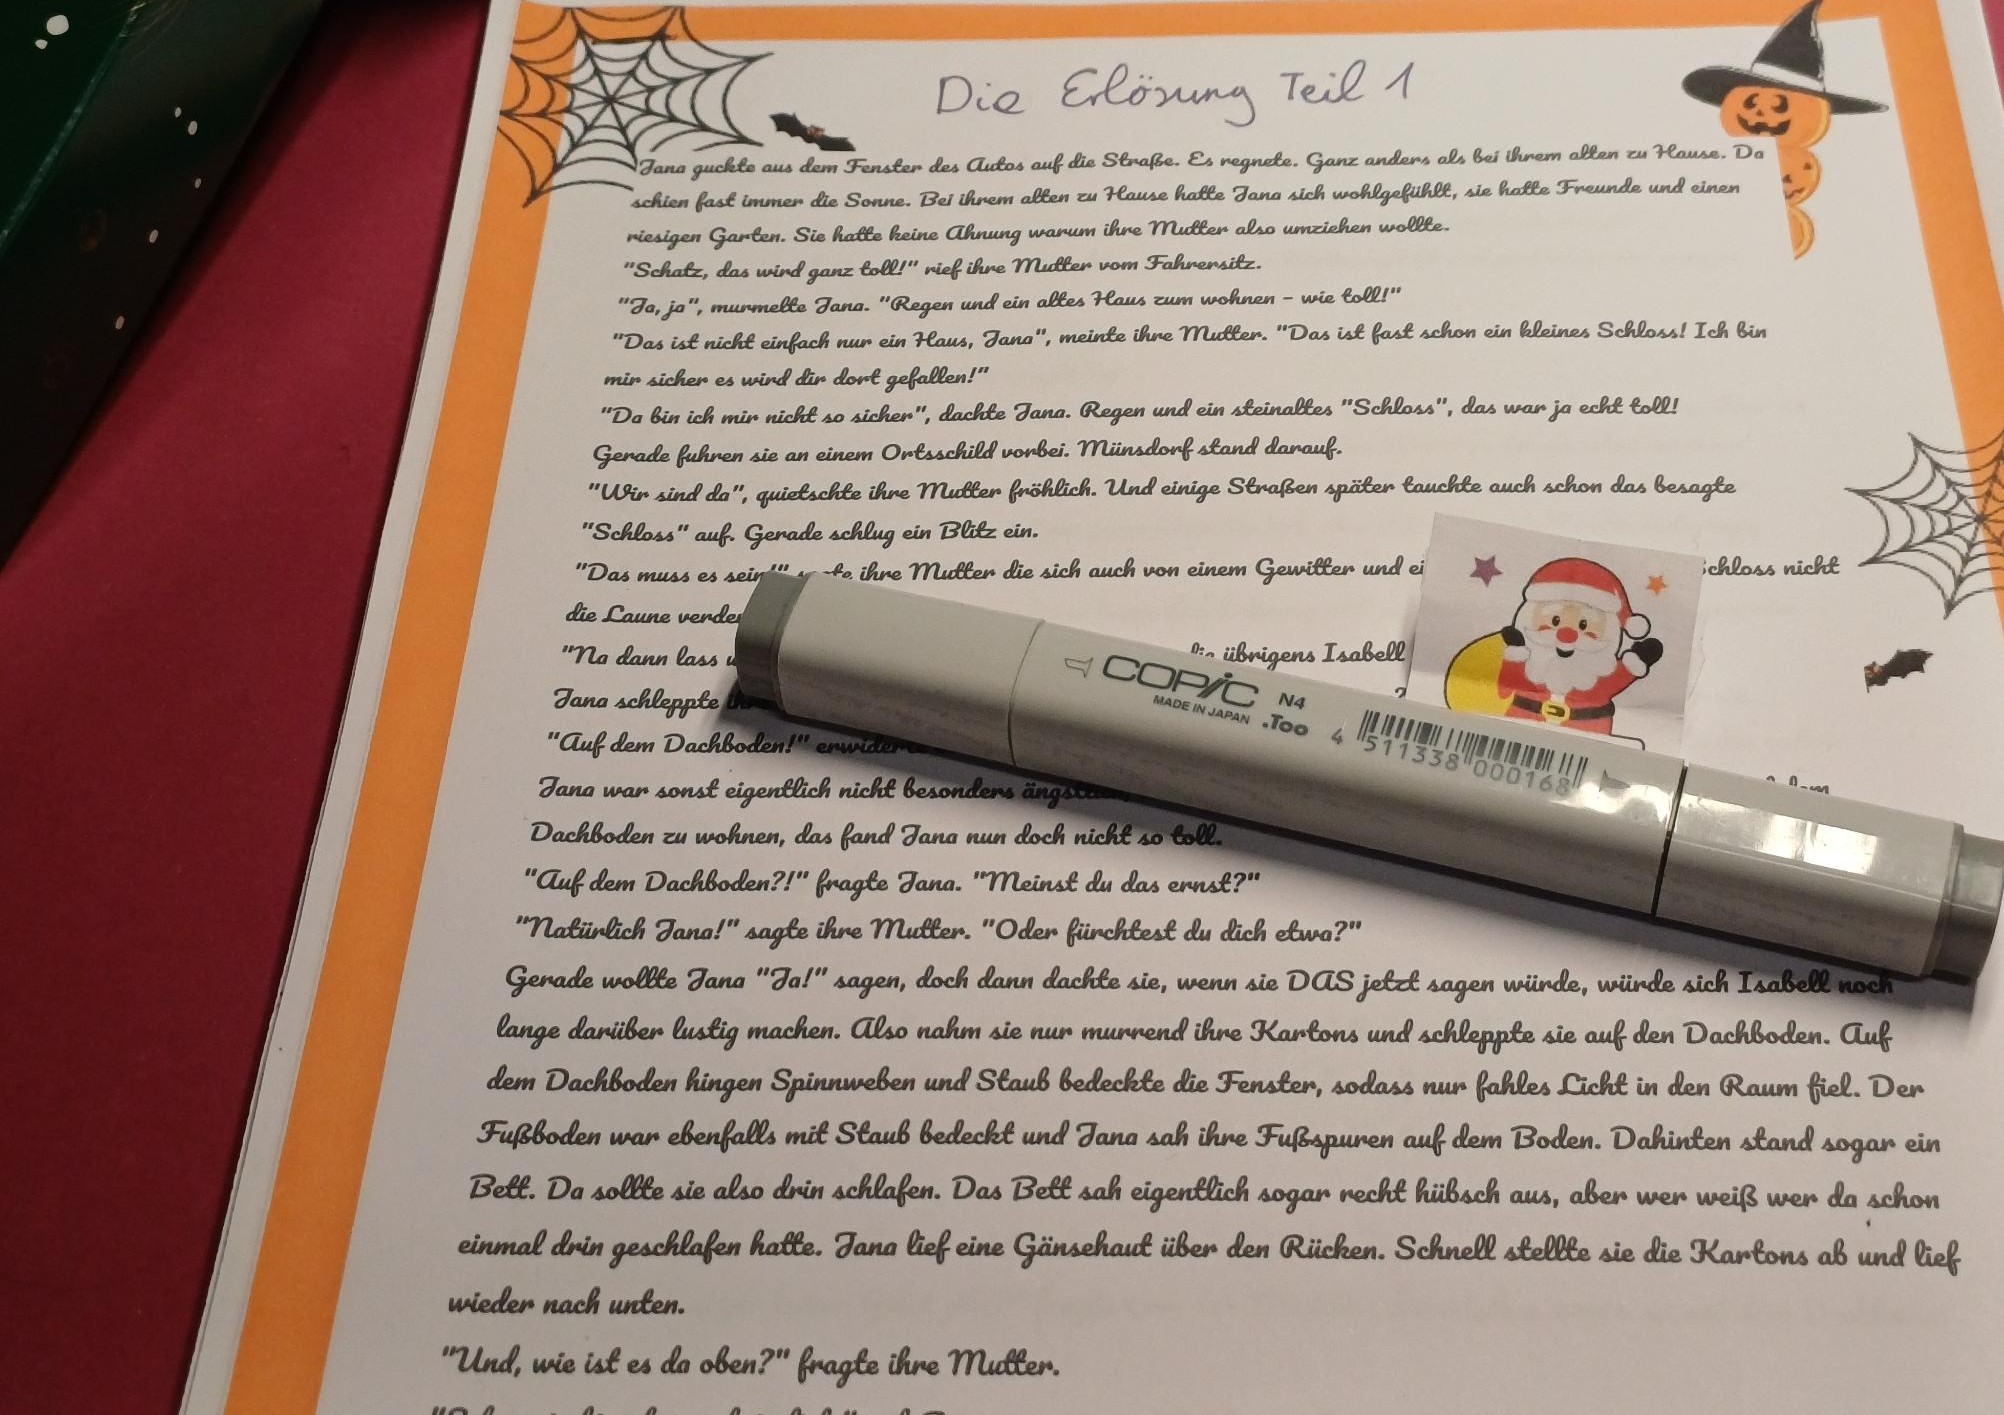 Die Erlösung Teil 1
Jana guckte aus dem Fenster des Autos auf die Straße. Es regnete. Ganz anders als bei ihrem alten zu Hause. Da
schien fast immer die Sonne. Bei ihrem alten zu Hause hatte Jana sich wohlgefühlt, sie hatte Freunde und einen
riesigen Garten. Sie hatte keine Ahnung warum ihre Mutter also umziehen wollte.
"Schatz, das wird ganz toll!" rief ihre Mutter vom Fahrersitz.
"Ja, ja", murmelte Jana. "Regen und ein altes Haus zum wohnen – wie toll!"
"Das ist nicht einfach nur ein Haus, Jana", meinte ihre Mutter. "Das ist fast schon ein kleines Schloss! Ich bin
mir sicher es wird dir dort gefallen!"
"Da bin ich mir nicht so sicher", dachte Jana. Regen und ein steinaltes "Schloss", das war ja echt toll!
Gerade fuhren sie an einem Ortsschild vorbei. Münsdorf stand darauf.
"Wir sind da", quietschte ihre Mutter fröhlich. Und einige Straßen später tauchte auch schon das besagte
"Schloss" auf. Gerade schlug ein Blitz ein.
"Das muss es sein!" ihre Mutter die sich auch von einem Gewitter und Schloss nicht
die Laune
"Na dann lass übrigens Isabell
Jana schleppte
"Auf dem Dachboden!"
Jana war sonst eigentlich nicht besonders
Dachboden zu wohnen, das fand Jana nun doch nicht so toll.
"Auf dem Dachboden?!" fragte Jana. "Meinst du das ernst?"
"Natürlich Jana!" sagte ihre Mutter. "Oder fürchtest du dich etwa?"
Gerade wollte Jana "Ja!" sagen, doch dann dachte sie, wenn sie DAS jetzt sagen würde, würde sich Isabell noch
lange darüber lustig machen. Also nahm sie nur murrend ihre Kartons und schleppte sie auf den Dachboden. Auf
dem Dachboden hingen Spinnweben und Staub bedeckte die Fenster, sodass nur fahles Licht in den Raum fiel. Der
Fußboden war ebenfalls mit Staub bedeckt und Jana sah ihre Fußspuren auf dem Boden. Dahinten stand sogar ein
Bett. Da sollte sie also drin schlafen. Das Bett sah eigentlich sogar recht hübsch aus, aber wer weiß wer da schon
einmal drin geschlafen hatte. Jana lief eine Gänsehaut über den Rücken. Schnell stellte sie die Kartons ab und lief
wieder nach unten.
"Und, wie ist es da oben?" fragte ihre Mutter.
COPIC N4
MADE IN JAPAN .Too
4 511338 000168